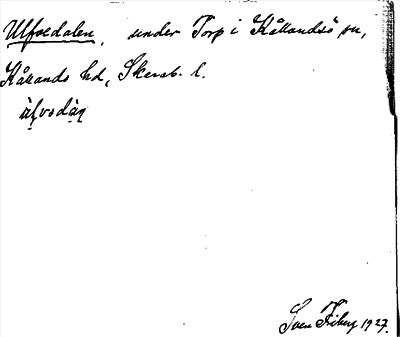 Ulfvedalen, under Torp i Kållandsö sn,
Kållands hd, Skarab. l.
Sven Friberg 1927.